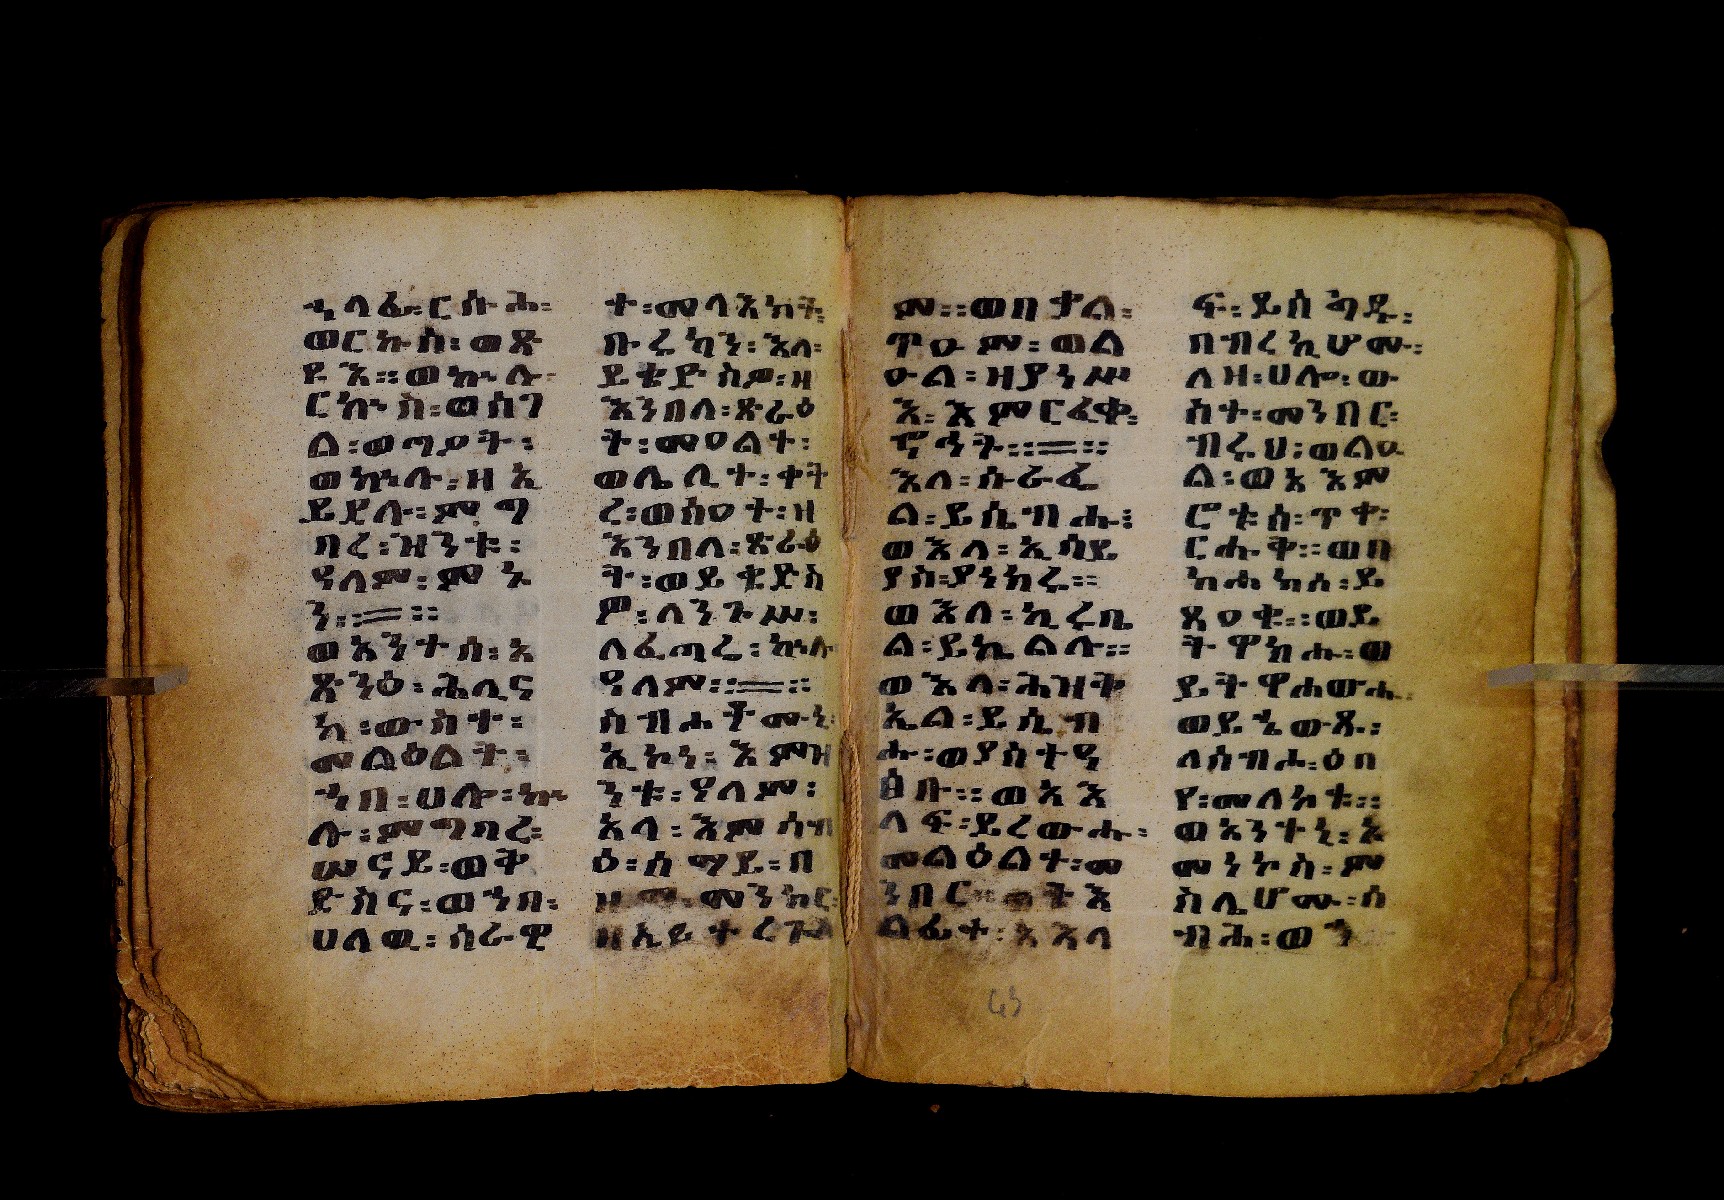 ኀላፊ፡ርሱሕ፡
ወርኩስ፡ወጽ
ዩእ።ወኵሉ፡
ርኵስ፡ወሰገ
ል፡ወጣዖት፡
ወኵሉ፡ዘኢ
ይደሉ፡ምግ
ባረ፡ዝንቱ፡
ዓለም፡ምኑ
ን።=።
ወአንተሰ፡አ
ጽንዕ፡ሕሊና
ከ፡ውስተ፡
መልዕልት፡
ኀበ፡ሀሎ፡ኵ
ሉ፡ምግባረ፡
ሠናይ፡ወቅ
ድስና፡ወንበ፡
ሀለዉ፡ሰራዊ
ተ፡መላእክት፡
ቡሩካን፡እለ፡
ይቄድስዎ፡ዘ
እንበለ፡ጽራዕ
ት፡መዐልተ፡
ወሌሊተ፡ቀት
ረ፡ወሰዐተ፡ዘ
እንበለ፡ጽራዕ
ት፡ወይቄድስ
ዎ፡ለንጉሥ፡
ለፈጣሬ፡ኵሉ
ዓለም።=።
ስብሐቶሙኒ፡
ኢኮነ፡እምዝ
ንቱ፡ዓለም፡
አላ፡እምሳብ
ዕ፡ሰማይ፡በ
መንክር፡
ዘኢይተረጐ
ም።ወበቃል፡
ጥዑም፡ወል
ዑል፡ዘያነሥ
እ፡እምርፈቁ፡
ሮዳት።=።
እለ፡ሱራፌ
ል፡ይሴብሑ፡
ወእለ፡ኢሳይ
ያስ፡ያነክሩ።
ወእለ፡ኪሩቤ
ል፡ይኬልሉ።
ወእለ፡ሕዝቅ
ኤል፡ይሴብ
ሑ፡ወያስተዓ
ፅቡ።ወአእ
ላፍ፡ይረውሑ፡
መልዕልተ፡መ
ንበር፡ወትእ
ልፊተ፡አእላ
ፍ፡ይሰግዱ፡
በብረኪሆሙ፡
ለዘ፡ሀሎ፡ው
ስተ፡መንበር፡
ብሩህ፡ወልዑ
ል፡ወእእም
ሮቱሰ፡ጥቀ፡
ርሑቅ።ወበ
ከሐከሰ፡ይ
ጸዐቁ።ወይ
ትዋከሑ፡ወ
ይትዋሐውሑ፡
ወይኄውጹ፡
ለሰብሐ፡ዕበ
የ፡መለኮቱ።
ወአንተኒ፡አ
መነኮስ፡ም
ስሌሆሙ፡ሰ
ብሕ፡ወ